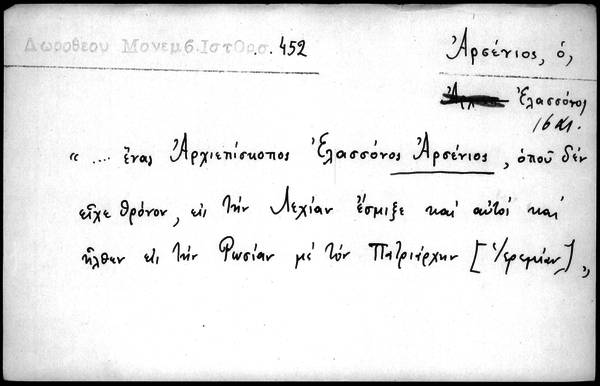 Δωροθεου Μονεμβ.Ιστορσ. 452
Ἀρσένιος, ὁ,
Ἐλασσόνος
".... ἕνας Ἀρχιεπίσκοπος Ἐλασσόνος Ἀρσένιος, ὁποῦ δέν
εἶχε θρόνον, εἰς τήν Λεχίαν ἔσμιξε καί αὐτοί καί
ἦλθεν εἰς τήν Ρωσίαν μέ τόν Πατριάρχην [Ἱερεμίαν]"